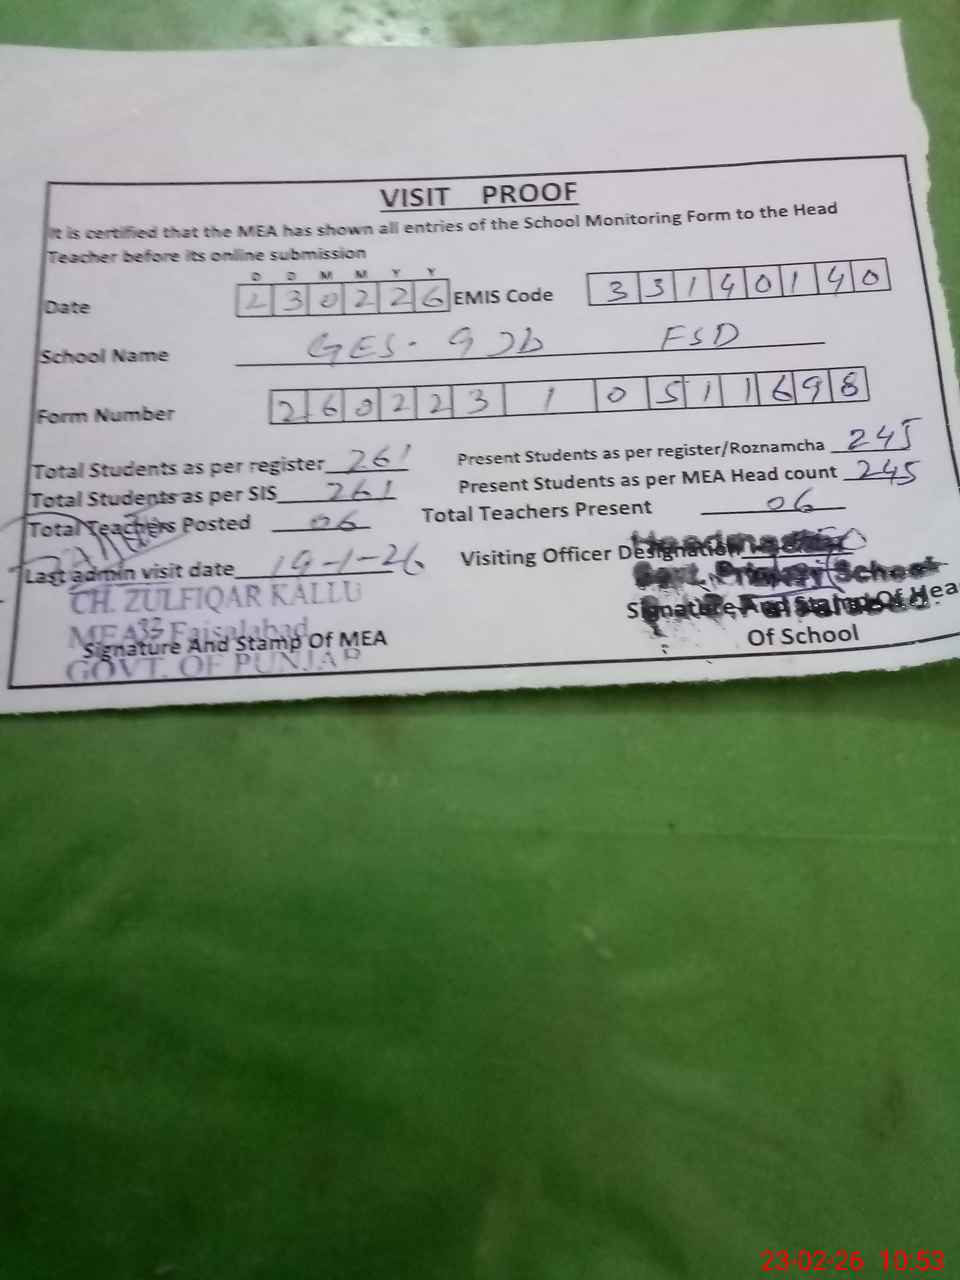 VISIT PROOF
It is certified that the MEA has shown all entries of the School Monitoring Form to the Head
Teacher before its online submission
D D M M Y Y
Date 230226 EMIS Code 33140140
School Name GES. 9 Jb FSD
Form Number 26022310511698
Total Students as per register 261 Present Students as per register/Roznamcha 245
Total Students as per SIS 261 Present Students as per MEA Head count 245
Total Teachers Posted 06 Total Teachers Present 06
Last admin visit date 19-1-26 Visiting Officer Designation
CH. ZULFIQAR KALLU
MEA 33 Faisalabad
GOVT. OF PUNJAB
Signature And Stamp Of MEA
Govt. Primary School
Signature And Stamp Of Hea
Of School
23-02-26 10:53